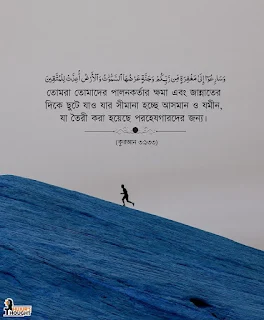 وَسَارِعُوٓا۟ إِلَىٰ مَغْفِرَةٍ مِّن رَّبِّكُمْ وَجَنَّةٍ عَرْضُهَا ٱلسَّمَٰوَٰتُ وَٱلْأَرْضُ أُعِدَّتْ لِلْمُتَّقِينَ
তোমরা তোমাদের পালনকর্তার ক্ষমা এবং জান্নাতের
দিকে ছুটে যাও যার সীমানা হচ্ছে আসমান ও যমীন,
যা তৈরী করা হয়েছে পরহেযগারদের জন্য।
(কুরআন ৩:১৩৩)
THOUGHT